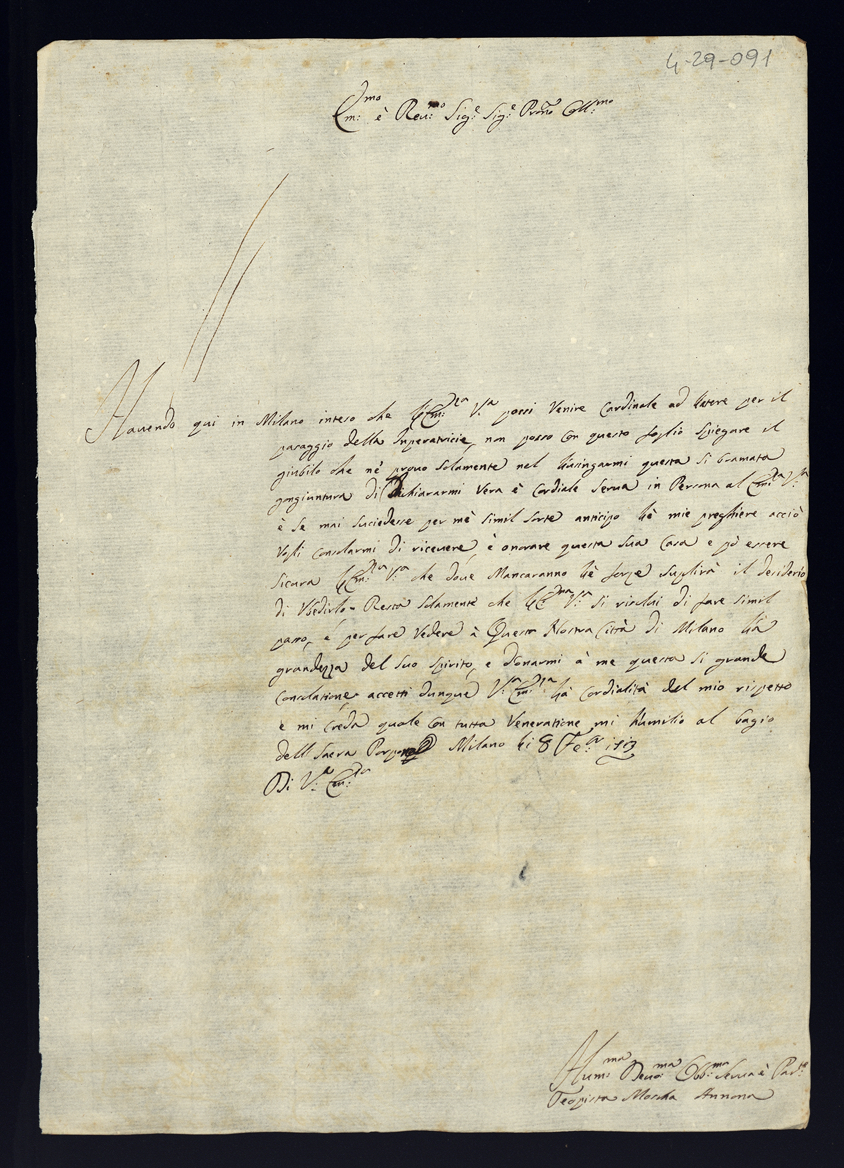 4-29-091
Em:mo è Reu:mo Sig:e Sig:e Prone Coll:mo
Hauendo qui in Milano inteso che L'Em:za V:a possi Venire Cardinale ad latere per il
pasaggio della Inperatricie, non posso con questo foglio spiegare il
giubilo che né prouo solamente nel lusingarmi questa si bramata
gongiuntura di dichiararmi Vera è Cordiale Serua in Persona al Em:za V:a
è se mai suciedesse per mé simil sorte anticipo lé mie preghiere acciò
Vogli Consolarmi di riceuere, è onorare questa sua Casa e può essere
sicura L'Em:za V:a che doue Mancaranno lé forze suplirà il desiderio
di Vbedirlo- Resta solamente che L'Em:za V:a si risolui di fare simil
passo, e per fare Vedere à Questa Nostra Città di Milano la
grandezza del suo spirito, e donarmi à me questa si grande
Consolatione accetti dunque V:a Em:za la Cordialità del mio rispetto
e mi Creda quale con tutta Veneratione mi humilio al bagio
dell Sacra Porpora Milano li 8 Fe:ro 1713
Di V:a Em:za
Hum:ma Deuo:ma Obb:ma Serua è
Teopista Moscha Annona